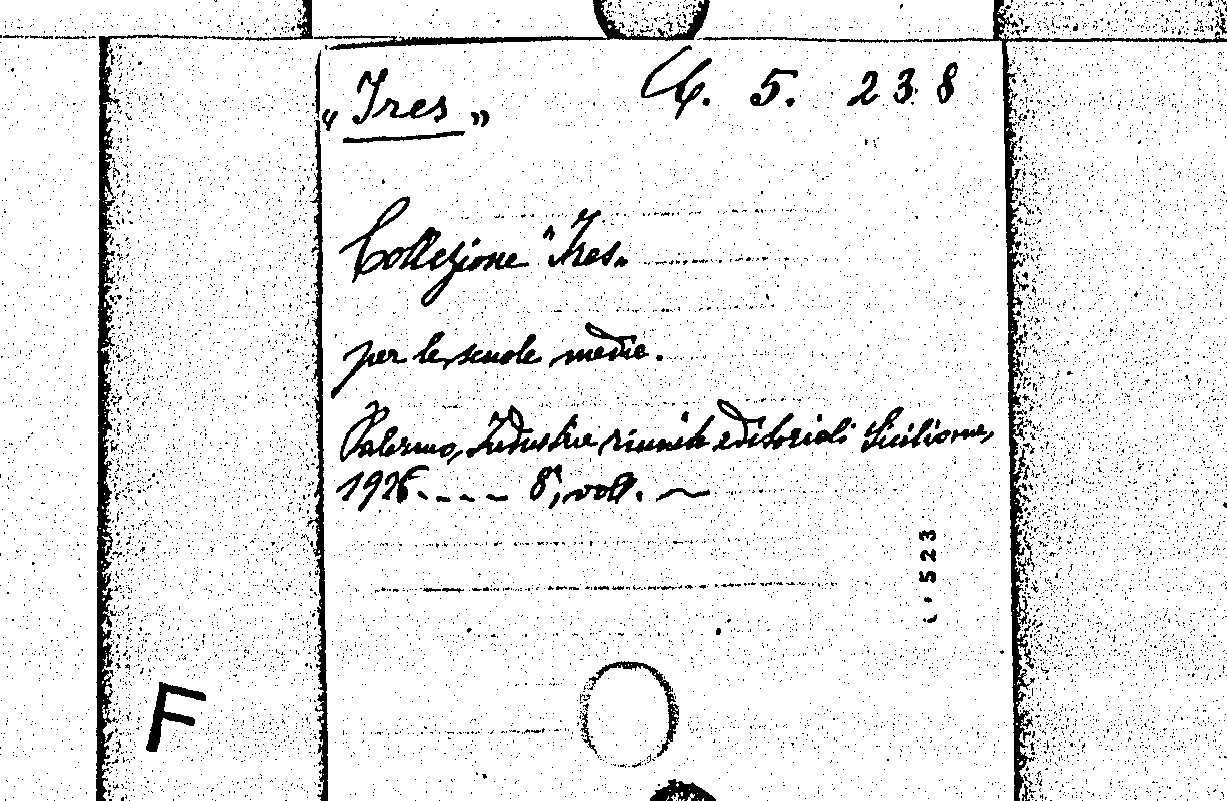 "Ires" C. 5. 238
Collezione "Ires"
per le scuole medie.
Palermo, Industrie riunite editoriali Siciliane,
1926. - - - - 8°, voll. ~
523
F